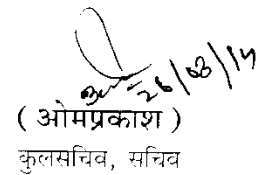 26/08/14
( ओमप्रकाश )
कुलसचिव, सचिव